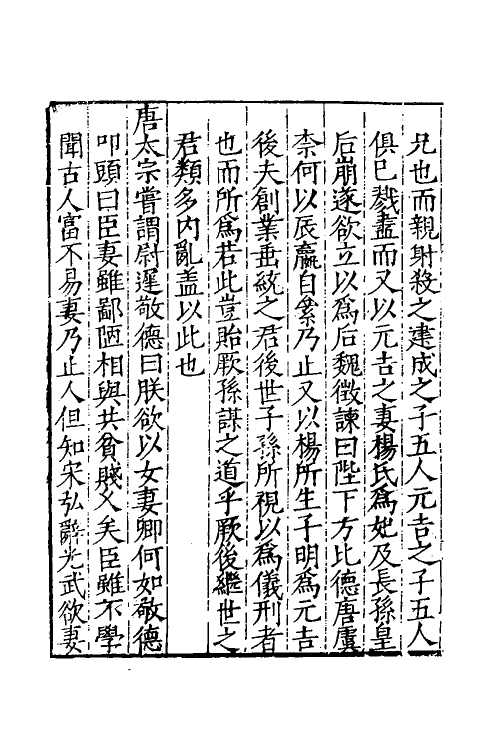 兄也而親射殺之建成之子五人元吉之子五人
俱已戮盡而又以元吉之妻楊氏爲妃及長孫皇
后崩遂欲立以爲后魏徵諫曰陛下方比德唐虞
柰何以辰嬴自累乃止又以楊所生子明爲元吉
後夫創業垂統之君後世子孫所視以爲儀刑者
也而所爲若此豈貽厥孫謀之道乎厥後繼世之
君類多内亂盖以此也
唐太宗嘗謂尉遲敬德曰朕欲以女妻卿何如敬德
叩頭曰臣妻雖鄙陋相與共貧賤乆矣臣雖不學
聞古人富不易妻乃止人但知宋弘辭光武欲妻